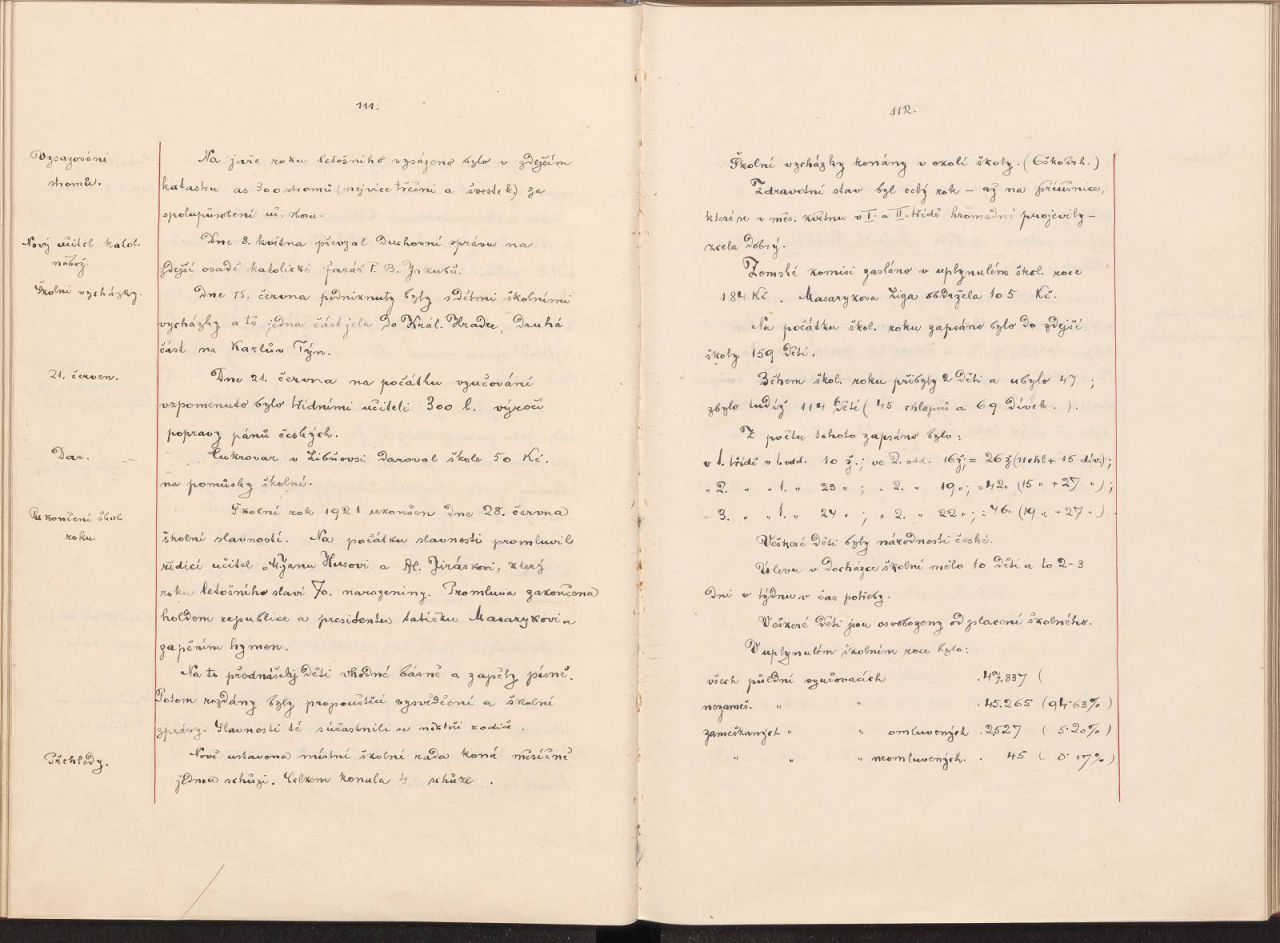 111.
Vysazování
stromů.
Na jaře roku letošního vysázeno bylo v zdejším
katastru as 300 stromů (nejvíce třešní a švestek) za
spolupůsobení uč. sboru.
Nový učitel katol.
nábož.
Dne 8. května převzal duchovní správu na
zdejší osadě katolické farář P. B. Jakubů.
Školní vycházky.
Dne 15. června podniknuty byly s dětmi školními
vycházky a to jedna část jela do Král. Hradce, druhá
část na Karlův Týn.
21. červen.
Dne 21. června na počátku vyučování
vzpomenuto bylo třídními učiteli 300 l. výročí
popravy pánů českých.
Dar.
Cukrovar v Libňovsi daroval škole 50 Kč.
na pomůcky školní.
Ukončení škol.
roku.
Školní rok 1921 ukončen dne 28. června
školní slavností. Na počátku slavnosti promluvil
řídící učitel o Mjanu Husovi a Al. Jiráskovi, který
roku letošního slaví 70. narozeniny. Promluva zakončena
holdem republice a presidentu tatíčku Masarykovi a
zapěním hymen.
Na to přednášely děti vhodné básně a zapěly písně.
Potom rozdány byly propouštěcí vysvědčení a školní
zprávy. Slavnosti té súčastnili se někteří rodiče.
Přehledy.
Nově ustavena místní školní rada koná měsíčně
jednou schůzi. Celkem konala 4 schůze.
112.
Školní vycházky konány v okolí školy. (6škošrh.)
Zdravotní stav byl celý rok – až na příušnice,
které se v měs. květnu v I. a II. třídě hromadně projevily –
zcela dobrý.
Zemské komisi zasláno v uplynulém škol. roce
184 Kč. Masarykova Liga obdržela 105 Kč.
Na počátku škol. roku zapsáno bylo do zdejší
školy 159 dětí.
Během škol. roku přibyly 2 děti a ubylo 47;
zbylo tudíž 114 dětí (45 chlapců a 69 dívek.).
Z počtu tohoto zapsáno bylo:
v 1. třídě v 1. odd. 10 ž.; ve 2. odd. 16 ž; = 26 ž (11 chl + 15 dív.);
„ 2. „ „ 1. „ 23 „ ; „ 2. „ 19 „; = 42 „ (15 „ + 27 „);
„ 3. „ „ 1. „ 24 „ ; „ 2. „ 22 „; = 46 „ (19 „ + 27 „)
Veškeré děti byly národnosti české.
Úlevu v docházce školní mělo 10 dětí a to 2-3
dni v týdnu v čas potřeby.
Veškeré děti jsou osvobozeny od placení školného.
V uplynulém školním roce bylo:
všech půldní vyučovacích . 47.837 (
nezameš. „ „ . 45.265 (94·63%)
zameškaných „ „ omluvených . 2527 (5·20%)
„ „ „ neomluvených. . 45 (0·17%)